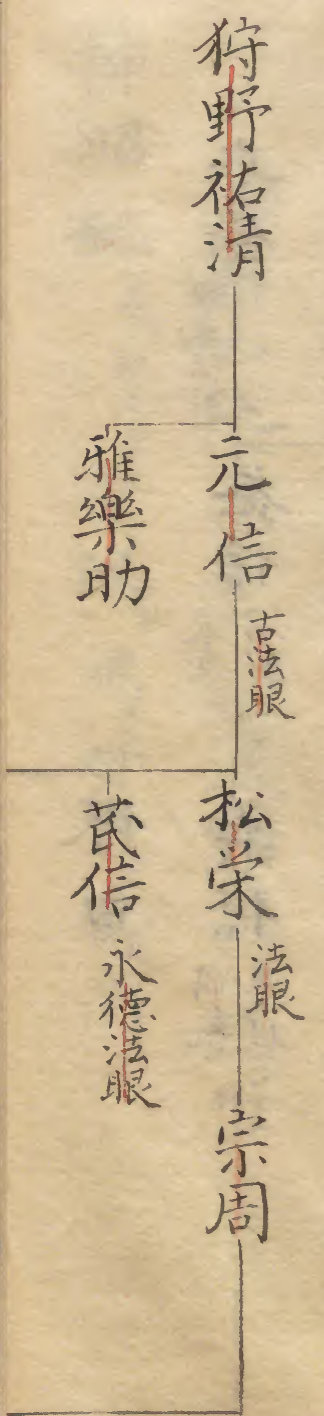 狩野祐清
元信
古法眼
雅樂助
松栄
法眼
宗周
茂信
永德法眼